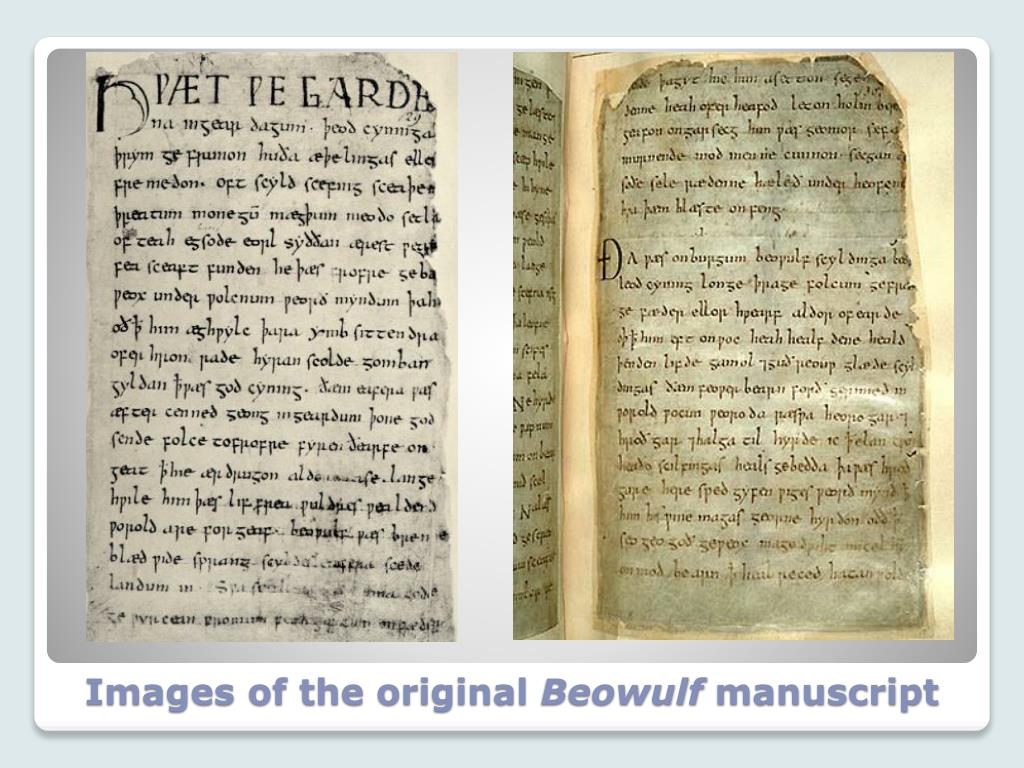 HǷÆT ǷE GARDE
na ingear dagum. þeod cyninga
þrym ge frunon huða æþelingas elle
fremedon. oft scyld scefing sceaþe
þreatum monegū mægþum meodo setla
of teah egsode eorl syððan ærest ƿe
fea sceaft funden he þæs frofre geba
ƿeox under ƿolcnum ƿeorð myndum þah
oð ꝥ him æghƿylc þara ymb sittendra
ofer hron rade hyran scolde gomban
gyldan ꝥ ƿæs god cyning. ðæm eafera ƿæs
æfter cenned geong ingeardum þone god
sende folce tofrofre fyren ðearfe on
geat ꝥ hie ær drugon aldor ase. lange
hƿile him þæs liffrea ƿuldres ƿealdend
ƿorold are forgeaf. beoƿulf ƿæs breme
blæd ƿide sprang scyldes eafera scede
landum in. Sƿa sceal guma gode
ge ƿyrcean fromum on fæder
þagyt hie him asetton segen
denne heah ofer heafod leton holm ber
geafon ongar secg him ƿæs geomor sefa
murnende mod men ne cunnon secgan
soðe sele rædenne hæleð under heofenū
hƿa þæm hlæste onfeng.
ÐA ƿæs onburgum beoƿulf scyldinga
leod cyning longe þrage folcum gefræ
ge fæder ellor hƿearf aldor of earde
oþ ꝥ him eft onƿoc heah healfdene heold
þenden lifde gamol ⁊ guð reouƿ glæde scyl
dingas ðæm feoƿer bearn forð gerimed in
ƿorold ƿocun ƿeoroda ræsƿa heorogar ⁊
hroðgar ⁊ halga til hyrde ic ꝥ elan
heaðo scilfingas heals gebedda þa ƿæs hroð
gare here sped gyfen ƿiges ƿeorð mynd ꝥ
him his ƿine magas georne hyrdon oðð
seo geogoð geƿeox mago driht micel
onmod bearn ꝥ heal reced hatan ƿolde
Images of the original Beowulf manuscript